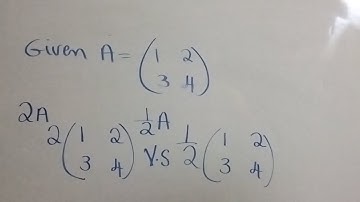 Given A = (1 2
3 4)
2A 1/2 A
2 (1 2 V.S 1/2 (1 2
3 4) 3 4)